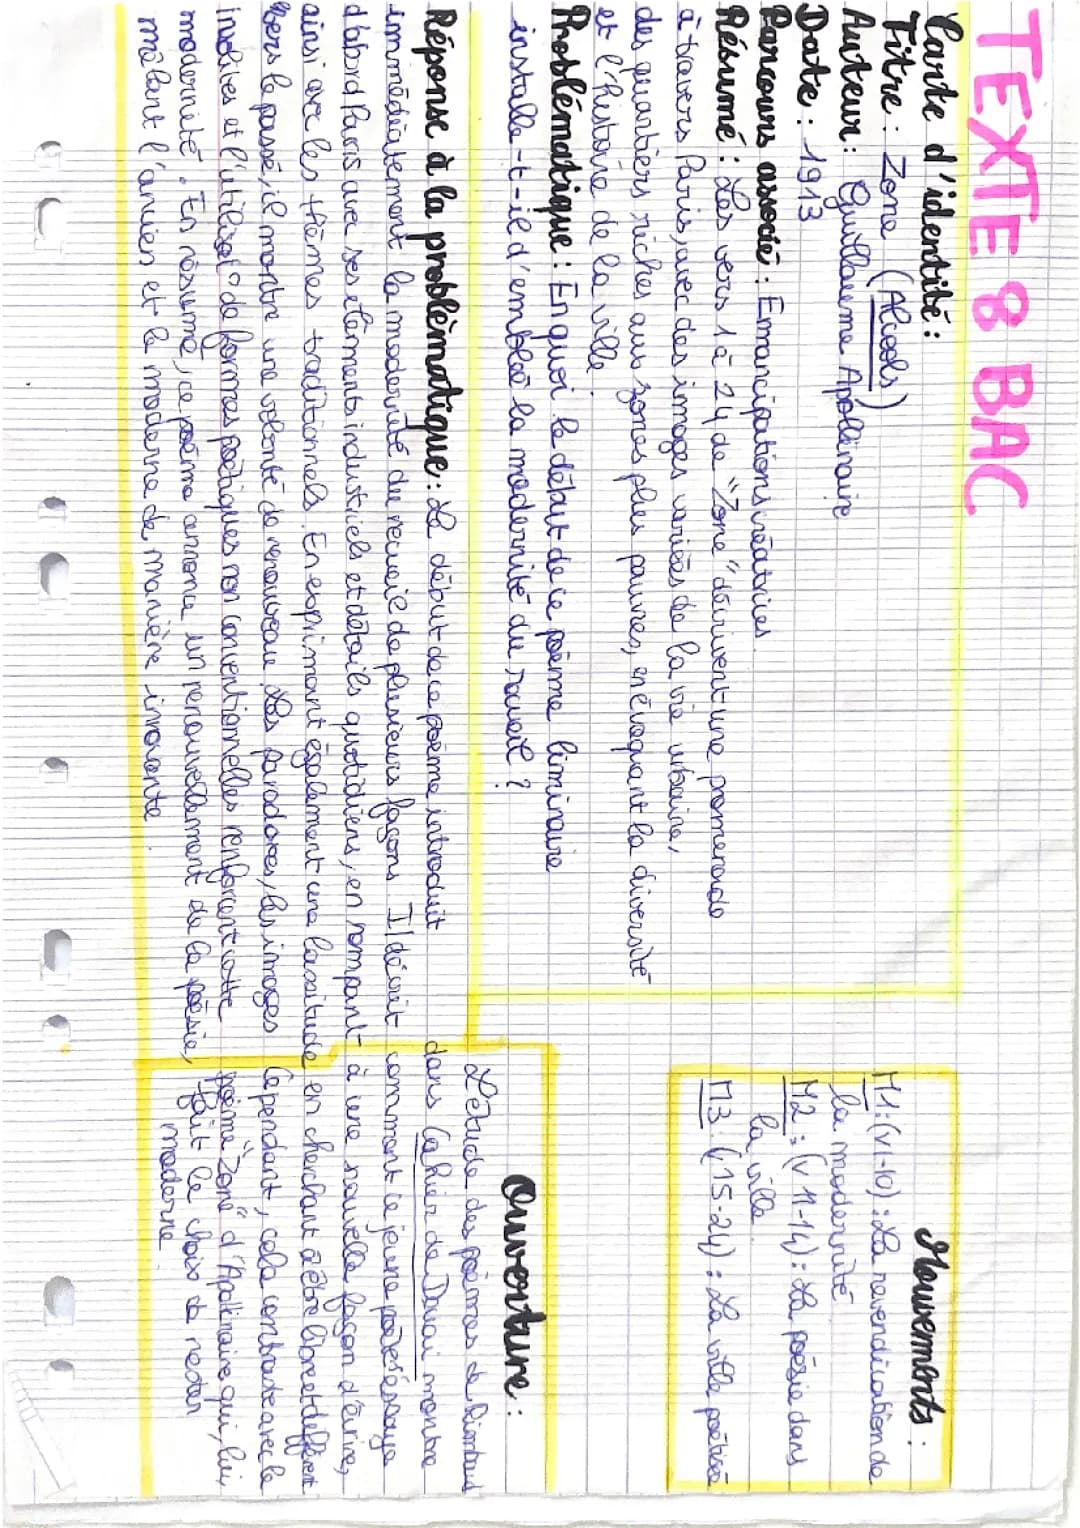 TEXTE 8 BAC
Carte d'identité :
Titre : Zone (Alcools)
Auteur : Guillaume Apollinaire
Date : 1913
Parcours associé : Emancipations créatrices.
Résumé : Les vers 1 à 24 de "Zone" décrivent une promenade
à travers Paris, avec des images variées de la vie urbaine,
des quartiers riches aux zones plus pauvres, en évoquant la diversité
et l'histoire de la ville.
Problématique : En quoi le début de ce poème liminaire
installe-t-il d'emblée la modernité du recueil ?
Mouvements :
M1 : (v1-10) : La revendication de
la modernité.
M2 : (v 11-14) : La poésie dans
la ville.
M3 : (15-24) : La ville poétisée
Réponse à la problématique : Le début de ce poème introduit
immédiatement la modernité du recueil de plusieurs façons. Il décrit
d'abord Paris avec ses éléments industriels et détails quotidiens, en rompant
ainsi avec les thèmes traditionnels. En exprimant également une lassitude
vers le passé, il montre une volonté de renouveau. Les paradoxes, les images
insolites et l'utilisat° de formes poétiques non conventionnelles renforcent cette
modernité. En résumé, ce poème annonce un renouvellement de la poésie,
mêlant l'ancien et le moderne de manière innovante.
Ouverture :
L'étude des poèmes de Rimbaud
dans Cahier de Douai montre
comment ce jeune poète essaye
à une nouvelle façon d'écrire,
en cherchant à être libre et différent
Cependant, cela contraste avec le
poème "Zone" d'Apollinaire qui, lui,
fait le choix de rester
moderne